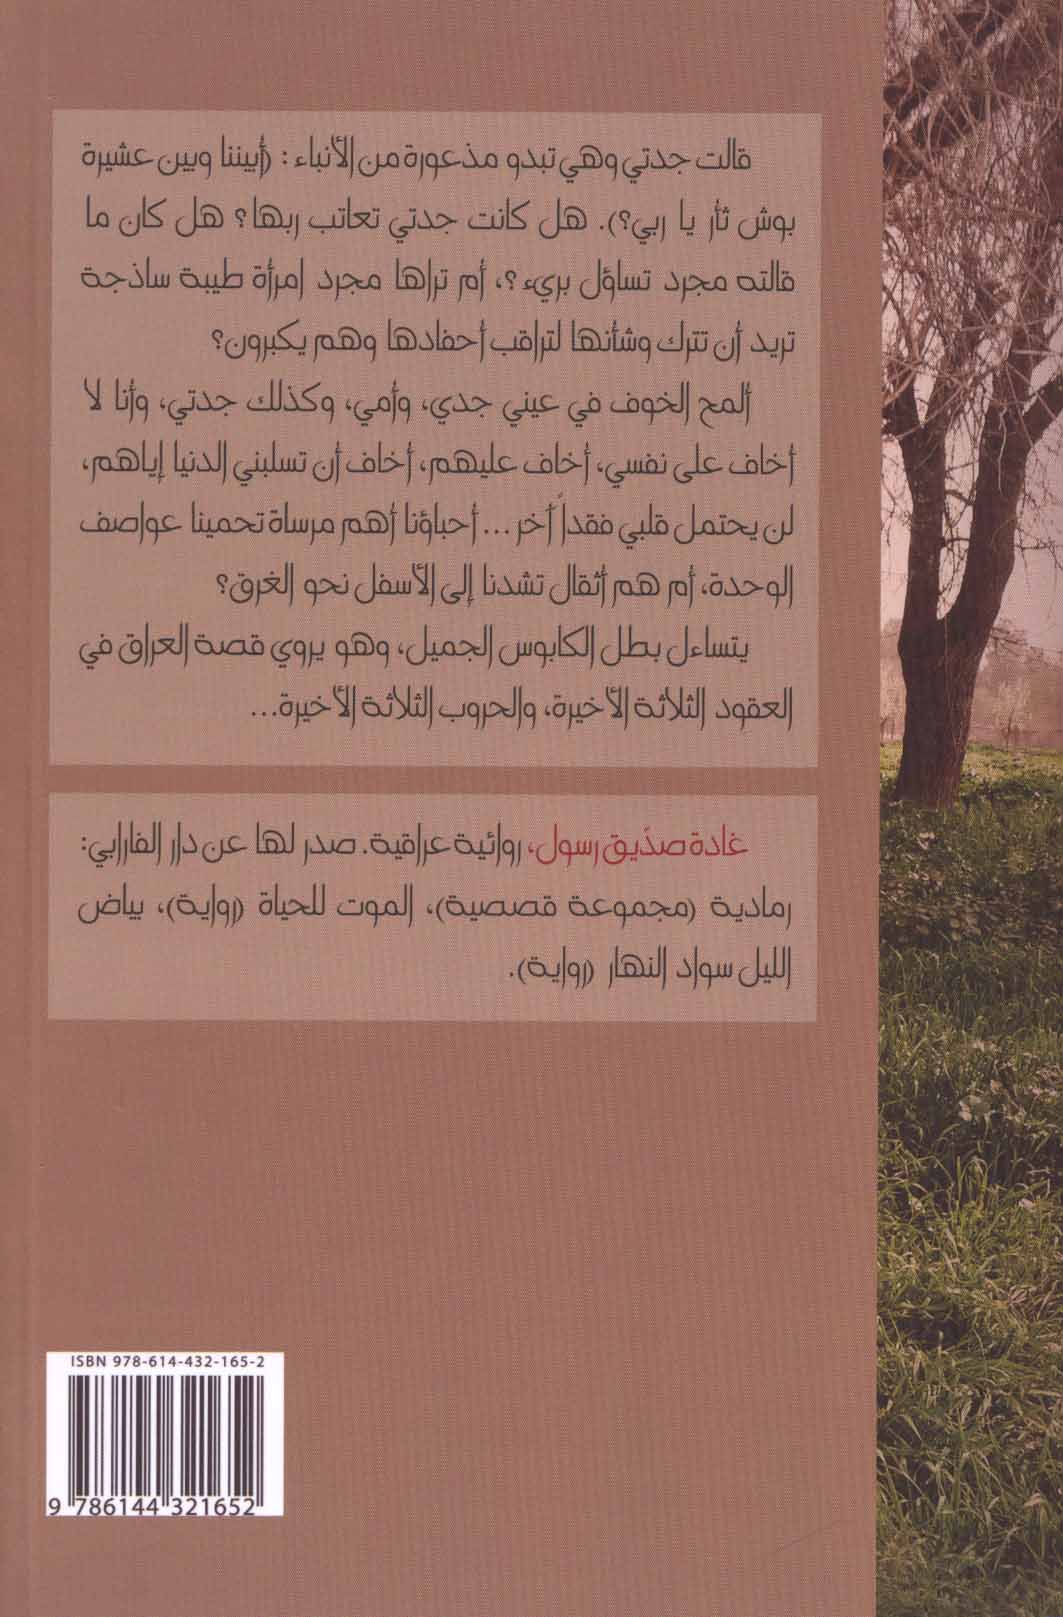 قالت جدتي وهي تبدو مذعورة من الأنباء: (أبيننا وبين عشيرة
بوش ثأر يا ربي؟). هل كانت جدتي تعاتب ربها؟ هل كان ما
قالته مجرد تساؤل بريء؟، أم تراها مجرد امرأة طيبة ساذجة
تريد أن تترك وشأنها لتراقب أحفادها وهم يكبرون؟
ألمح الخوف في عيني جدي، وأمي، وكذلك جدتي، وأنا لا
أخاف على نفسي، أخاف عليهم، أخاف أن تسلبني الدنيا إياهم،
لن يحتمل قلبي فقداً آخر... أحباؤنا أهم مرساة تحمينا عواصف
الوحدة، أم هم أثقال تشدنا إلى الأسفل نحو الغرق؟
يتساءل بطل الكابوس الجميل، وهو يروي قصة العراق في
العقود الثلاثة الأخيرة، والحروب الثلاثة الأخيرة...
غادة صدّيق رسول، روائية عراقية. صدر لها عن دار الفارابي:
رمادية (مجموعة قصصية)، الموت للحياة (رواية)، بياض
الليل سواد النهار (رواية).
ISBN 978-614-432-165-2
9 786144 321652